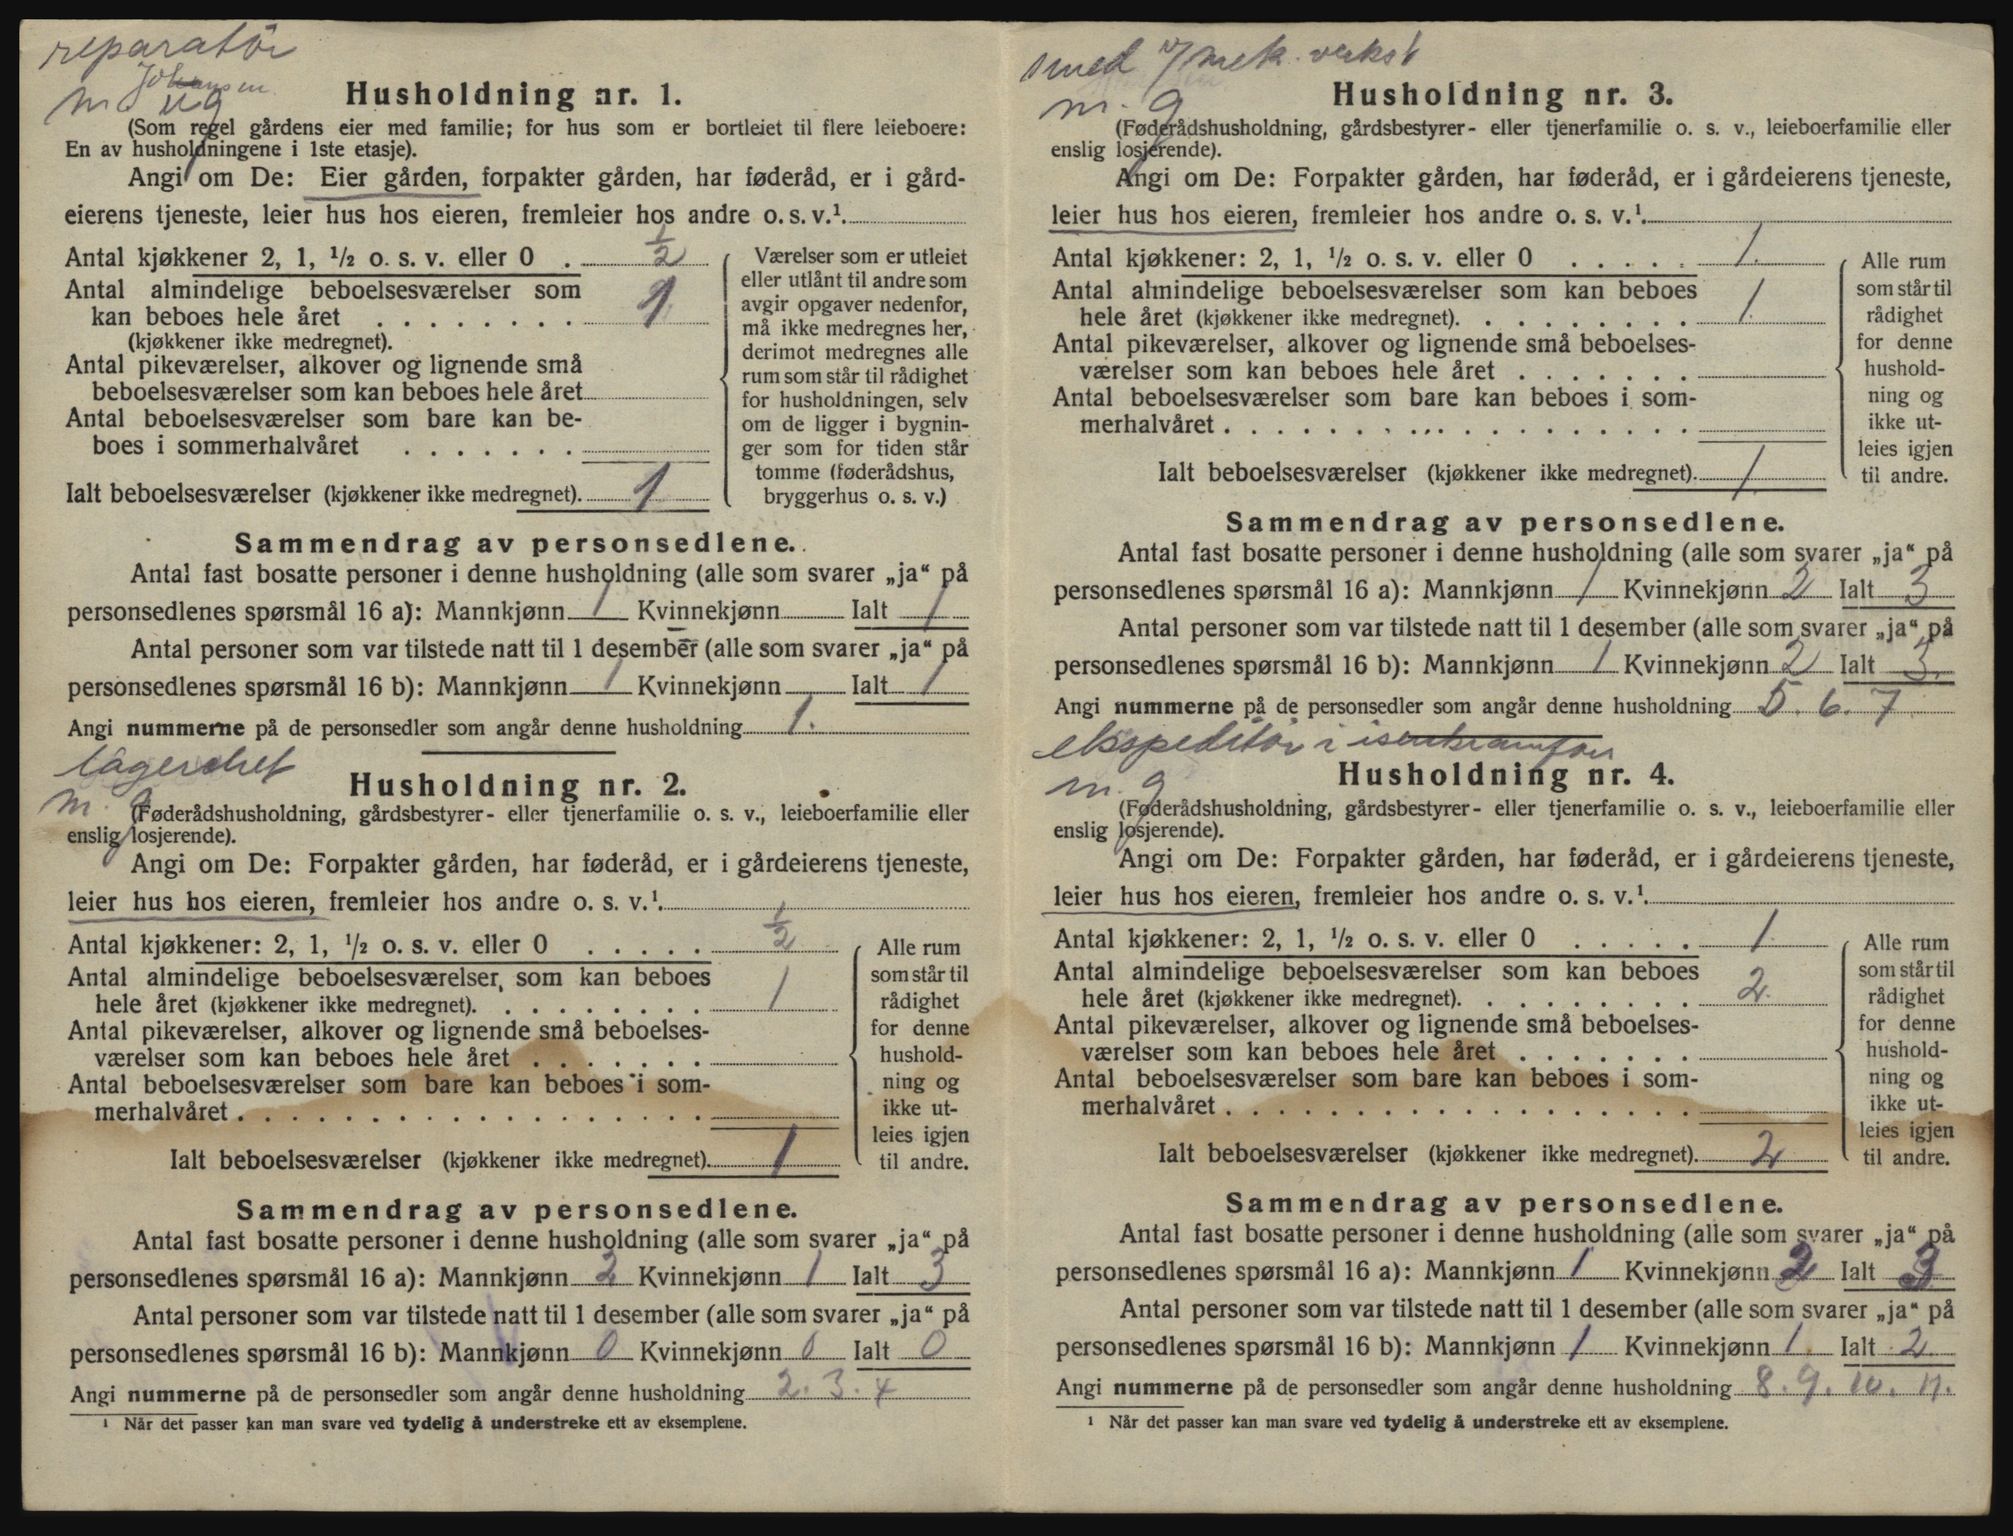 reparatör
Johansen
m. ug
Husholdning nr. 1.
(Som regel gårdens eier med familie; for hus som er bortleiet til flere leieboere:
En av husholdningene i 1ste etasje).
Angi om De: Eier gården, forpakter gården, har føderåd, er i gård-
eierens tjeneste, leier hus hos eieren, fremleier hos andre o. s. v.¹.
Antal kjøkkener 2, 1, ½ o. s. v. eller 0 . ½
Antal almindelige beboelsesværelser som
kan beboes hele året . . . . . . . . 1
(kjøkkener ikke medregnet).
Antal pikeværelser, alkover og lignende små
beboelsesværelser som kan beboes hele året
Antal beboelsesværelser som bare kan be-
boes i sommerhalvåret . . . . . . .
Ialt beboelsesværelser (kjøkkener ikke medregnet). 1
Værelser som er utleiet
eller utlånt til andre som
avgir opgaver nedenfor,
må ikke medregnes her,
derimot medregnes alle
rum som står til rådighet
for husholdningen, selv
om de ligger i bygnin-
ger som for tiden står
tomme (føderådshus,
bryggerhus o. s. v.)
Sammendrag av personsedlene.
Antal fast bosatte personer i denne husholdning (alle som svarer „ja“ på
personsedlenes spørsmål 16 a): Mannkjønn 1 Kvinnekjønn Ialt 1
Antal personer som var tilstede natt til 1 desember (alle som svarer „ja“ på
personsedlenes spørsmål 16 b): Mannkjønn 1 Kvinnekjønn Ialt 1
Angi nummerne på de personsedler som angår denne husholdning 1.
lagerchef
m. g
Husholdning nr. 2.
(Føderådshusholdning, gårdsbestyrer- eller tjenerfamilie o. s. v., leieboerfamilie eller
enslig losjerende).
Angi om De: Forpakter gården, har føderåd, er i gårdeierens tjeneste,
leier hus hos eieren, fremleier hos andre o. s. v.¹.
Antal kjøkkener: 2, 1, ½ o. s. v. eller 0 . . . . . ½
Antal almindelige beboelsesværelser som kan beboes
hele året (kjøkkener ikke medregnet). . . . . . . . . 1
Antal pikeværelser, alkover og lignende små beboelses-
værelser som kan beboes hele året . . . . . . .
Antal beboelsesværelser som bare kan beboes i som-
merhalvåret . . . . . . . . . . . . . . . . . .
Ialt beboelsesværelser (kjøkkener ikke medregnet). 1
Alle rum
som står til
rådighet
for denne
hushold-
ning og
ikke ut-
leies igjen
til andre.
Sammendrag av personsedlene.
Antal fast bosatte personer i denne husholdning (alle som svarer „ja“ på
personsedlenes spørsmål 16 a): Mannkjønn 2 Kvinnekjønn 1 Ialt 3
Antal personer som var tilstede natt til 1 desember (alle som svarer „ja“ på
personsedlenes spørsmål 16 b): Mannkjønn 0 Kvinnekjønn 0 Ialt 0
Angi nummerne på de personsedler som angår denne husholdning 2. 3. 4
¹ Når det passer kan man svare ved tydelig å understreke ett av eksemplene.
smed v/ mek. verkst
m. g
Husholdning nr. 3.
(Føderådshusholdning, gårdsbestyrer- eller tjenerfamilie o. s. v., leieboerfamilie eller
enslig losjerende).
Angi om De: Forpakter gården, har føderåd, er i gårdeierens tjeneste,
leier hus hos eieren, fremleier hos andre o. s. v.¹.
Antal kjøkkener: 2, 1, ½ o. s. v. eller 0 . . . . . 1.
Antal almindelige beboelsesværelser som kan beboes
hele året (kjøkkener ikke medregnet). . . . . . . . . 1.
Antal pikeværelser, alkover og lignende små beboelses-
værelser som kan beboes hele året . . . . . . .
Antal beboelsesværelser som bare kan beboes i som-
merhalvåret . . . . . . . . . . . . . . . . . .
Ialt beboelsesværelser (kjøkkener ikke medregnet). 1.
Alle rum
som står til
rådighet
for denne
hushold-
ning og
ikke ut-
leies igjen
til andre.
Sammendrag av personsedlene.
Antal fast bosatte personer i denne husholdning (alle som svarer „ja“ på
personsedlenes spørsmål 16 a): Mannkjønn 1 Kvinnekjønn 2 Ialt 3
Antal personer som var tilstede natt til 1 desember (alle som svarer „ja“ på
personsedlenes spørsmål 16 b): Mannkjønn 1 Kvinnekjønn 2 Ialt 3.
Angi nummerne på de personsedler som angår denne husholdning 5. 6. 7.
ekspeditör i isenkramforr
m. g
Husholdning nr. 4.
(Føderådshusholdning, gårdsbestyrer- eller tjenerfamilie o. s. v., leieboerfamilie eller
enslig losjerende).
Angi om De: Forpakter gården, har føderåd, er i gårdeierens tjeneste,
leier hus hos eieren, fremleier hos andre o. s. v.¹.
Antal kjøkkener: 2, 1, ½ o. s. v. eller 0 . . . . . 1.
Antal almindelige beboelsesværelser som kan beboes
hele året (kjøkkener ikke medregnet). . . . . . . . . 2.
Antal pikeværelser, alkover og lignende små beboelses-
værelser som kan beboes hele året . . . . . . .
Antal beboelsesværelser som bare kan beboes i som-
merhalvåret . . . . . . . . . . . . . . . . . .
Ialt beboelsesværelser (kjøkkener ikke medregnet). 2
Alle rum
som står til
rådighet
for denne
hushold-
ning og
ikke ut-
leies igjen
til andre.
Sammendrag av personsedlene.
Antal fast bosatte personer i denne husholdning (alle som svarer „ja“ på
personsedlenes spørsmål 16 a): Mannkjønn 1 Kvinnekjønn 2 Ialt 3
Antal personer som var tilstede natt til 1 desember (alle som svarer „ja“ på
personsedlenes spørsmål 16 b): Mannkjønn 1 Kvinnekjønn 1. Ialt 2.
Angi nummerne på de personsedler som angår denne husholdning 8. 9. 10. 11.
¹ Når det passer kan man svare ved tydelig å understreke ett av eksemplene.